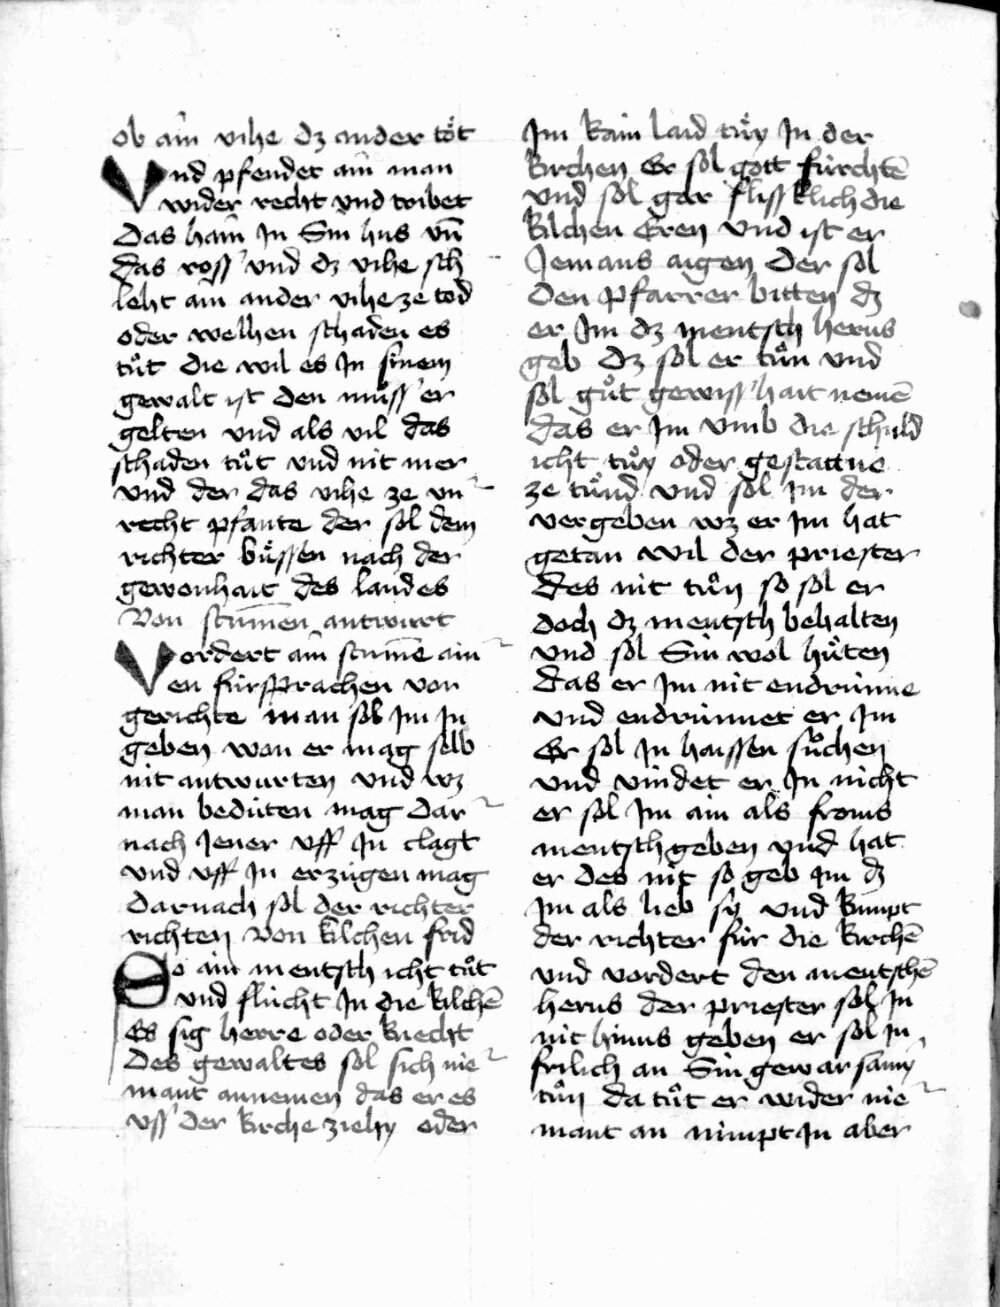 ob ain vihe dz ander töt
Vnd pfendet ain man
wider recht vnd tribet
das haim In Sin hus vn̄
das ross vnd dz vihe sch
leht ain ander vihe ze tod
oder welhen schaden es
tuͦt die wil es In sinem
gewalt ist den muͦss er
gelten vnd als vil das
schaden tuͦt vnd nit mer
vnd der das vihe ze vn
recht pfante der sol dem
richter buͤssen nach der
gewonhait des landes
Von stum̄en antwurt
Vordert ain stum̄e ain
en fürsprachen vor
gerichte man sol Im In
geben won er mag selb
nit antwurten vnd wz
man bedüten mag dar
nach Jener vff In clagt
vnd vff In erzügen mag
darnach sol der richter
richten von kilchen frid
So ain mentsch icht tuͦt
vnd flücht In die kilchē
Es sig herre oder knecht
des gewaltes sol sich nie
mant annemen das er es
vss der kirche ziehy oder
Im kain laid tuͤy In der
kirchen Er sol gott fürchtē
vnd sol gar flissklich die
kilchen Eren vnd ist er
Jemans aigen der sol
den pfarrer bitten dz
er Im dz mentsch herus
geb dz sol er tuͦn vnd
sol guͦt gewisshait nemē
das er Im vmb die schuld
icht tuͤy oder gestattne
ze tuͦnd vnd sol Im der
vergeben wz er Im hat
getan wil der priester
des nit tuͦn so sol er
doch dz mentsch behalten
vnd sol Sin wol huͤten
das er Im nit endrünne
vnd endrünnet er Im
Er sol In haissen suͦchen
vnd vindet er In nicht
er sol Im ain als froms
mentsch geben vnd hat
er des nit so geb Im dz
Im als lieb sy vnd kumpt
der richter für die kirchē
vnd vordert den mentschē
herus der priester sol In
nit hinus geben er sol In
frilich an Sin gewarsamy
tuͦn da tuͦt er wider nie
mant an nimpt In aber